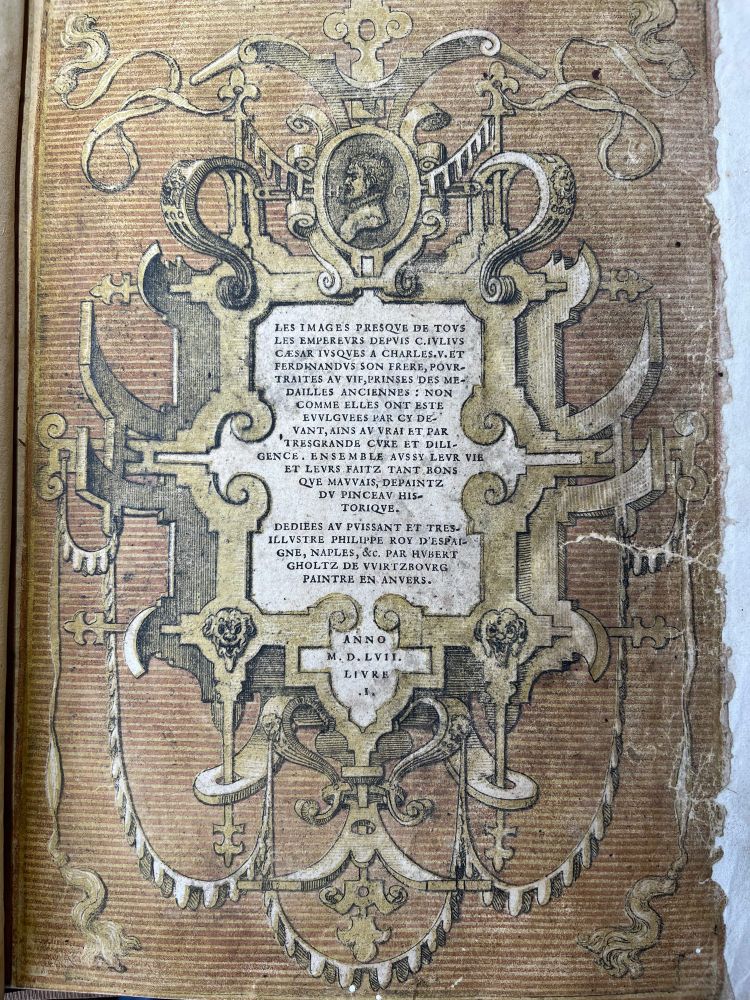 H G
LES IMAGES PRESQVE DE TOVS
LES EMPEREVRS DEPVIS C.IVLIVS
CÆSAR IVSQVES A CHARLES.V. ET
FERDINANDVS SON FRERE, POVR-
TRAITES AV VIF, PRINSES DES ME-
DAILLES ANCIENNES : NON
COMME ELLES ONT ESTE
EVVLGVEES PAR CY DE-
VANT, AINS AV VRAI ET PAR
TRESGRANDE CVRE ET DILI-
GENCE. ENSEMBLE AVSSY LEVR VIE
ET LEVRS FAITZ TANT BONS
QVE MAVVAIS, DEPAINTZ
DV PINCEAV HIS-
TORIQVE.
DEDIEES AV PVISSANT ET TRES-
ILLVSTRE PHILIPPE ROY D'ESPAI-
GNE, NAPLES, &C. PAR HVBERT
GHOLTZ DE VVIRTZBOVRG
PAINTRE EN ANVERS.
ANNO
M. D. LVII.
LIVRE
.I.